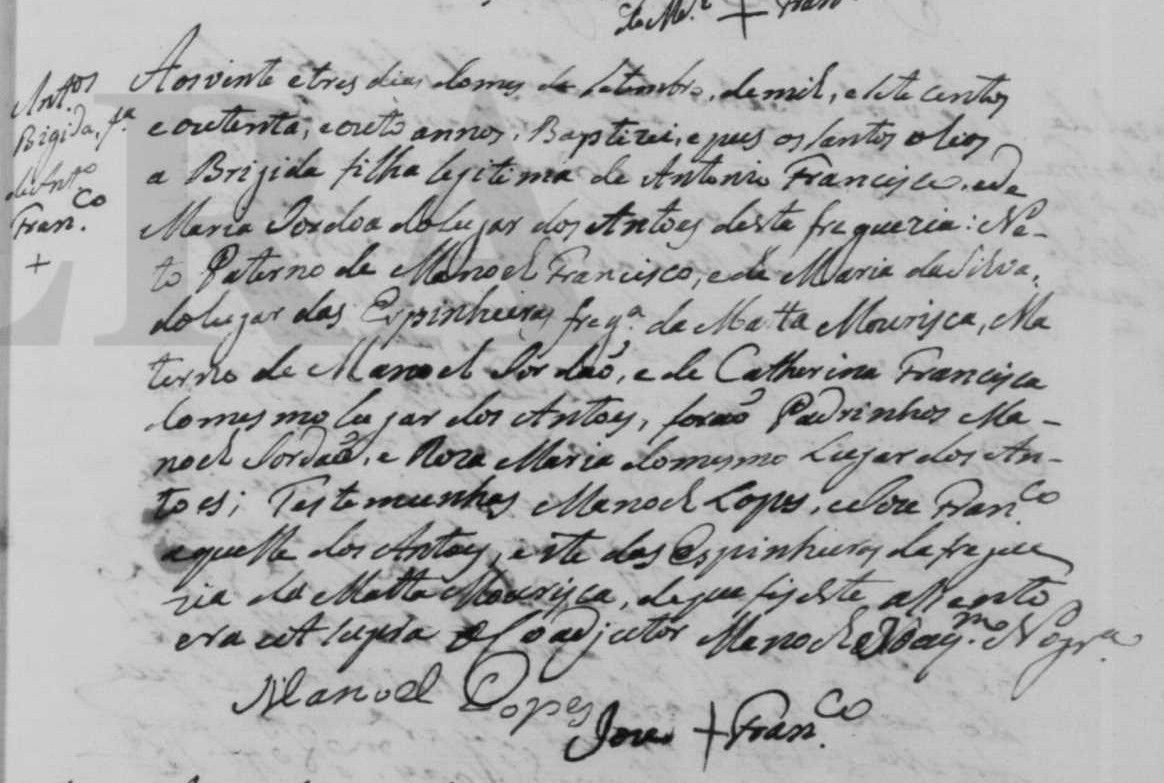 de Me.l + Fran.
Ant.os
Brigida, f.a
de Ant.o
Fran.co
+
Aos vinte e tres dias do mes de Setembro, de mil, e sete centos
e outenta, e outo annos, Baptizei, e pus os santos oleos
a Brigida filha legitima de Antonio Francisco, e de
Maria Jordoa do lugar dos Antoes desta freguezia: Ne-
to Paterno de Manoel Francisco, e de Maria da Silva,
do lugar das Espinheiras freg.a da Matta Mourisca, Ma
terno de Manoel Jordaõ, e de Catherina Francisca
do mesmo lugar dos Antoes, foraõ Padrinhos Ma-
noel Jordaõ, e Roza Maria do mesmo Lugar dos An-
toes; Testemunhas Manoel Lopes, e Joze Fran.co
aquelle dos Antoes, e este das Espinheiras da fregue
zia da Matta Mourisca, de que fis este assento
era ut supra o Coadjutor Manoel Joaq.m Nogr.a
Manoel Lopes
Joze + Fran.co